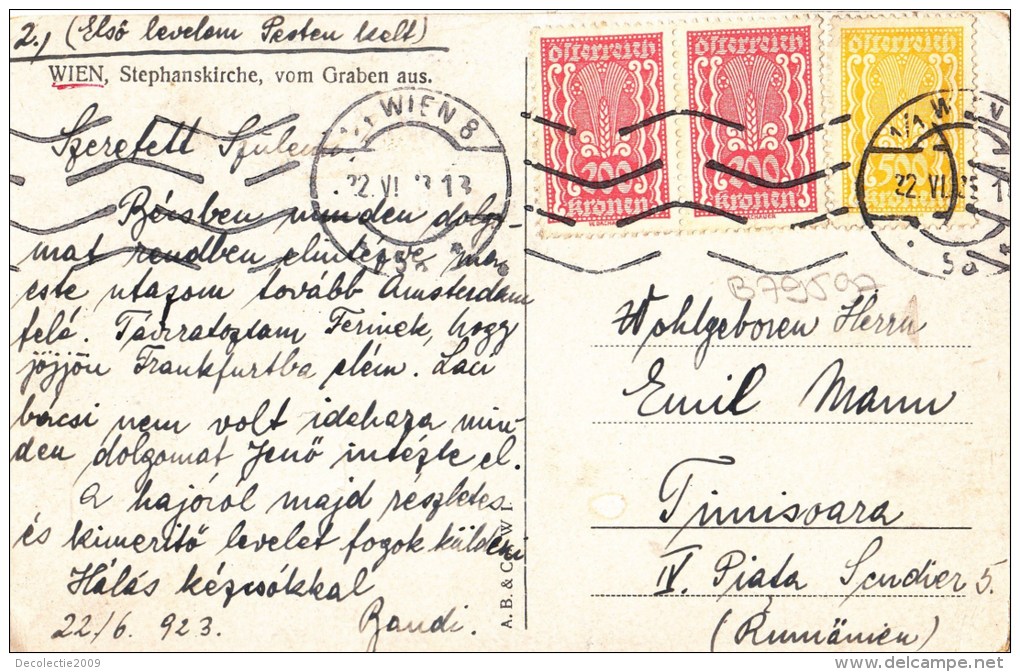 2., (Első levelem Pesten kelt)
WIEN, Stephanskirche, vom Graben aus.
Szeretett Szüleim!
Bécsben minden dolgo-
mat rendben elintézve, ma
este utazom tovább Amsterdam
felé. Táviratoztam Ferinek, hogy
jöjjön Frankfurtba elém. Laci
bácsi nem volt idehaza min-
den dolgomat Jenő intézte el.
a hajóról majd részletes
és kimerítő levelet fogok küldeni
Hálás kézcsókkal
22/6. 923. Bandi.
A. B. & C. W. I.
Österreich
200
kronen
Österreich
200
kronen
Österreich
500
kronen
1/1 WIEN 8
22.VI. 23 13
1/1 WIEN
22.VI
B79597
Wohlgeboren Herrn
Emil Mann
Timisoara
IV. Piata Scudier 5.
(Rumänien)
Decolectie2009
delcampe.net